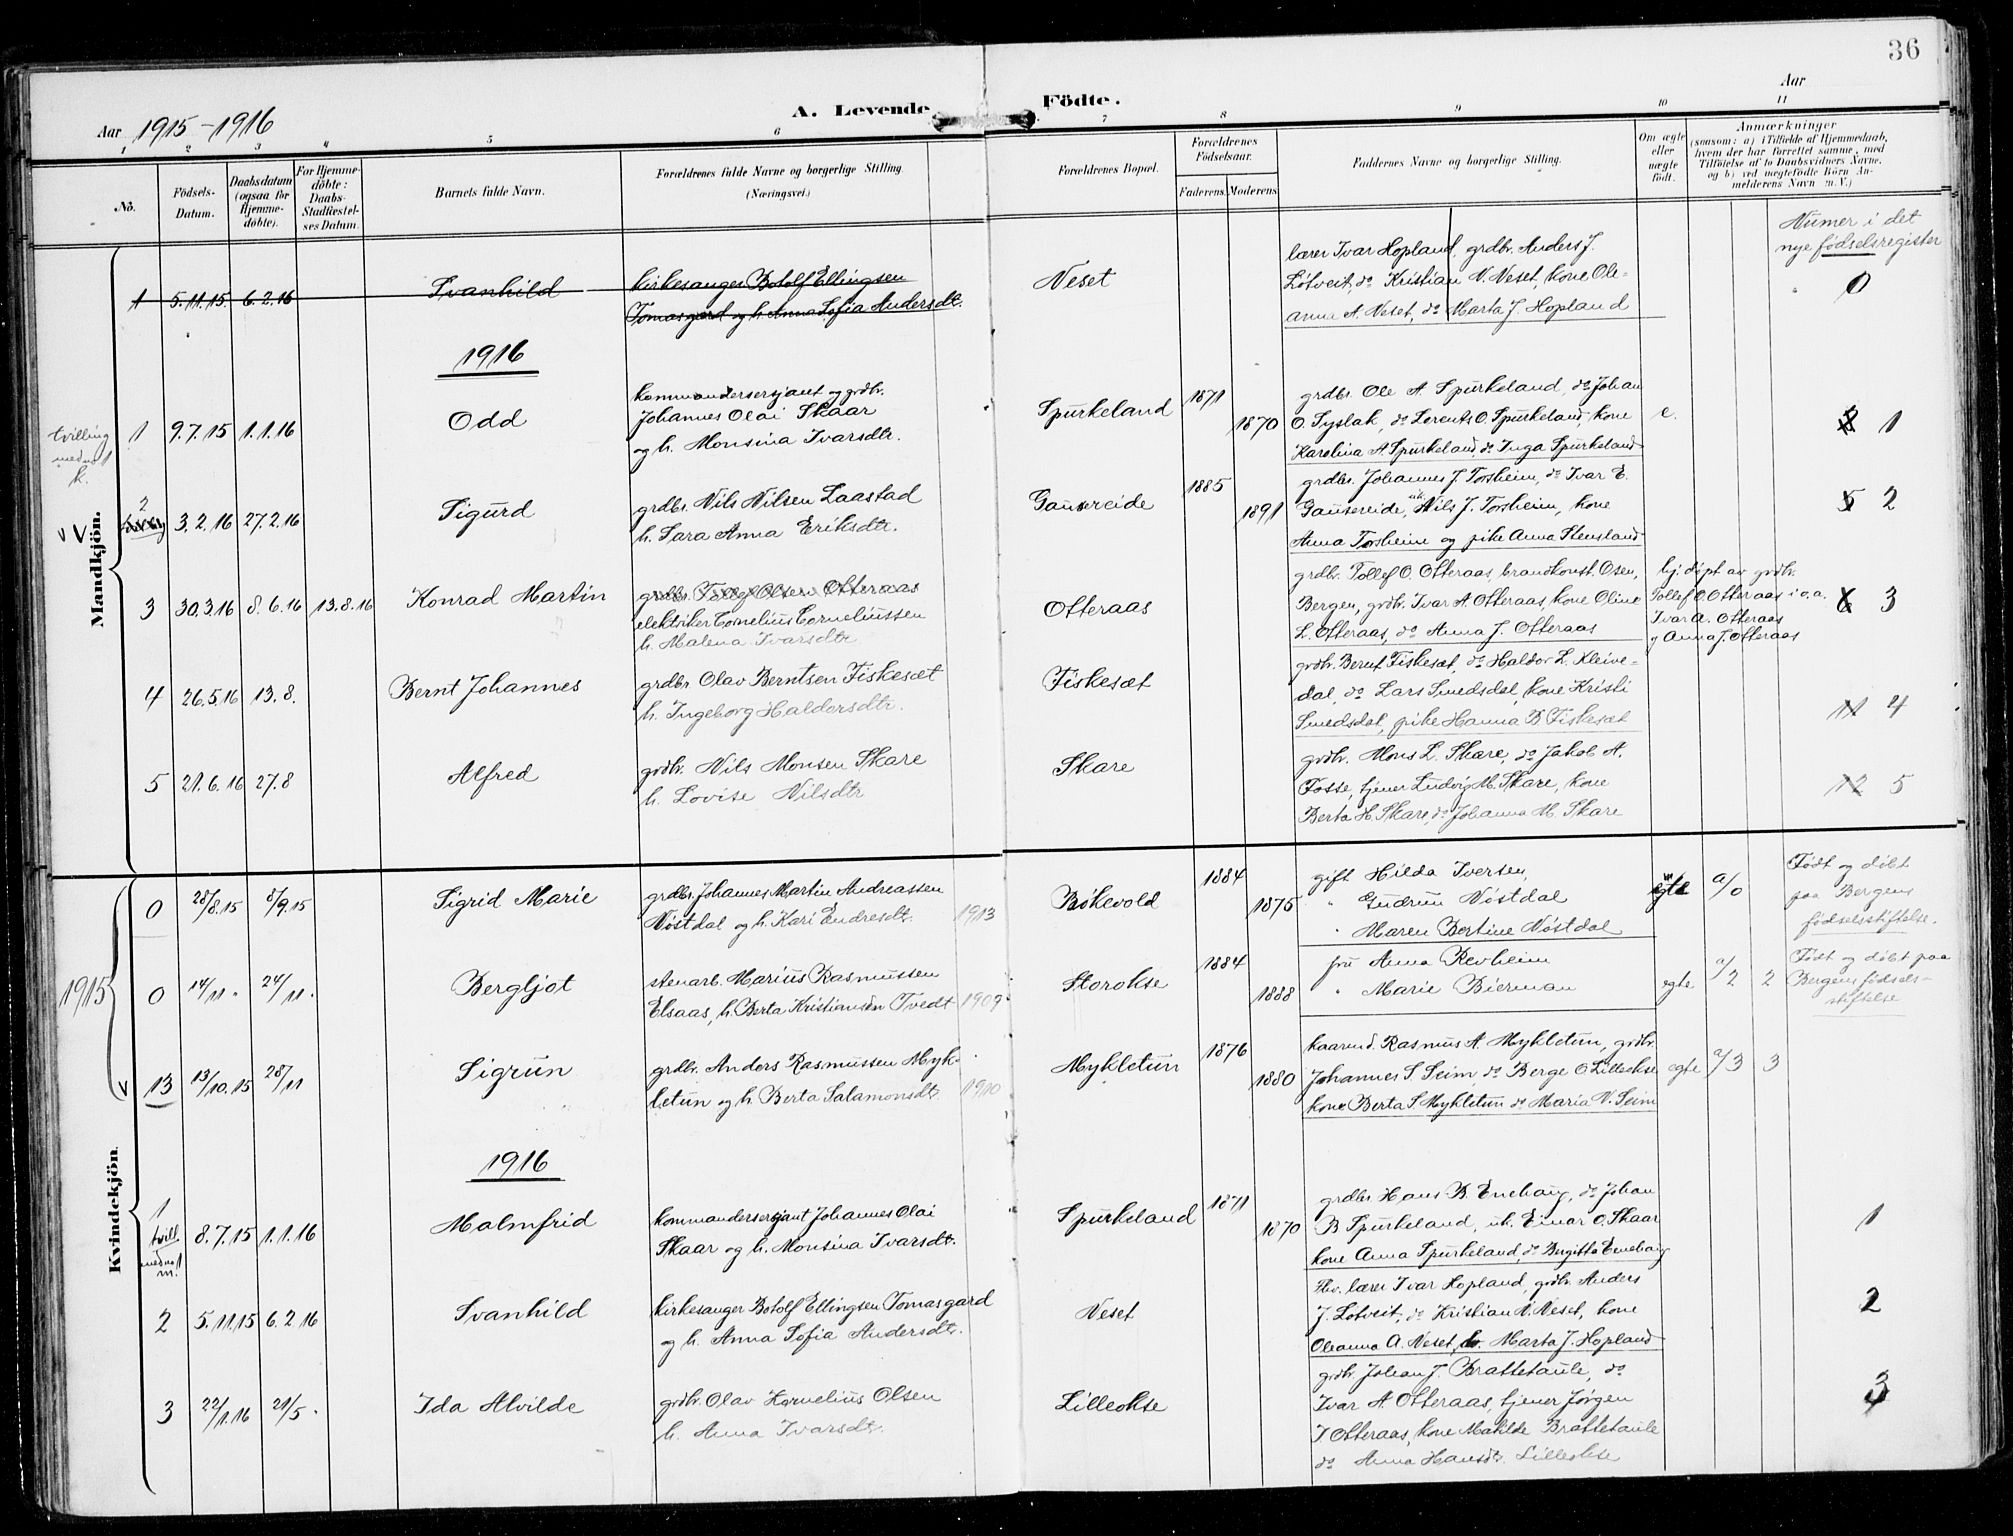 36
Aar 1915-1916
A. Levende Födte.
Aar
1 2 3 4 5 6 7 8 9 10 11
No.
Födsels-Datum.
Daabsdatum (ogsaa for Hjemme-döbte).
For Hjemme-döbte: Daabs-Stadfæstel-ses Datum.
Barnets fulde Navn.
Forældrenes fulde Navne og borgerlige Stilling (Næringsvei.)
Forældrenes Bopæl.
Forældrenes Födselsaar.
Faderens. Moderens.
Faddernes Navne og borgerlige Stilling.
Om ægte eller uægte födt.
Anmærkninger
(saasom: a) i Tilfælde af Hjemmedaab,
hvem der har forrettet samme, med
Tilföielse af to Daabsvidners Navne,
og b) ved uægtefödte Börn An-
melderens Navn m. V.)
Numer i det
nye fødselsregister
Mandkjön.
1 5.11.15. 6.2.16 Svanhild
kirkesanger Botolf Ellingsen
Tomasgard og h. Anna Sofia Andersdt.
Neset
lærer Ivar Hopland, grdbr. Anders J.
Løtveit, do Kristian N. Neset, kone Ole-
anna A. Neset, do Marta J. Hopland
0
1916
tvilling
med no 1
k.
1 9.7.15 1.1.16 Odd
kommandersersjant og grdbr.
Johannes Olai Skaar
og h. Monsina Ivarsdtr.
Spurkeland 1871 1870
grdbr. Ole A. Spurkeland, do Johan
O. Syslak, do Lorents O. Spurkeland, kone
Karolina A. Spurkeland, do Inga Spurkeland
e.
1
2
3.2.16 27.2.16 Sigurd
grdbr. Nils Nilsen Laastad
h. Sara Anna Eriksdtr.
Gausereide 1885 1891
grdbr. Johannes J. Torsheim, do Ivar E.
Gausereide, uk. Nils J. Torsheim, kone
Anna Torsheim og pike Anna Stensland
5 2
3 30.3.16 8.6.16 13.8.16 Konrad Martin
grdbr. Tollef Olsen Otteraas
elektriker Cornelius Corneliussen
h. Malena Ivarsdtr
Otteraas
grdbr. Tollef O. Otteraas, brandkonst. Osen,
Bergen, grdbr. Ivar A. Otteraas, kone Oline
L. Otteraas, do Anna J. Otteraas
hj. døpt av grdbr.
Tollef O. Otteraas i o.a.
Ivar A. Otteraas
g Anna J. Otteraas
6 3
4 26.5.16 13.8. Bernt Johannes
grdbr Olav Berntsen Fiskeset
h. Ingeborg Haldorsdtr.
Fiskeset
grdbr. Bernt Fiskeset, do Haldor L. Kleive-
dal, do Lars Smedsdal, kone Kristi
Smedsdal, pike Hanna B Fiskeset
11 4
5 21.6.16 27.8 Alfred
grdbr. Nils Monsen Skare
h. Lovise Nilsdtr
Skare
grdbr. Mons L. Skare, do Jakob A.
Fosse, tjener Ludvig M. Skare, kone
Berta H. Skare, do Johanna M. Skare
12 5
1915
Kvindekjön.
0 28/8.15 8/9.15 Sigrid Marie
grdbr. Johannes Martin Andreassen
Nøstdal og h. Kari Endresdt. 1913
Bøkevold 1884 1875
gift Hilda Iversen,
" Gudrun Nøstdal
" Maren Bertine Nøstdal
egte a/0
Født og døbt
paa Bergens
fødselsstiftelse.
0 14/11. 24/11. Bergljot
stenarb. Marius Rasmussen
Elsaas, h. Berta Kristiansen Tvedt 1909
Storokse 1884 1888
fru Anna Revheim
" Marie Bierman
egte a/2 2
Født og døbt paa
Bergens fødsels-
stiftelse
13 13/10.15 28/11 Sigrun
grdbr. Anders Rasmussen Myk-
letun og h. Berta Salamonsdt. 1910
Mykletun 1876 1880
kaarm d. Rasmus A. Mykletun, grdbr.
Johannes S. Seim, do Berge O. Lilleokse
kone Berta S. Mykletun do Maria N. Seim
egte a/3 3
1916
1
tvill
med no 1
m.
8.7.15 1.1.16 Malmfrid
kommandersersjant Johannes Olai
Skaar og h. Monsina Ivarsdt.
Spurkeland 1871 1870
grdbr. Hans B. Enehaug, do Johan
B Spurkeland, uk. Einar O. Skaar
kone Anna Spurkeland, do Birgitta Enehaug
1
2 5.11.15 6.2 16 Svanhild
kirkesanger Botolf Ellingsen Tomasgard
og h. Anna Sofia Andersdt.
Neset
lærer Ivar Hopland, grdbr. Anders
J. Løtveit, do Kristian N. Neset, kone
Oleanna A. Neset, do Marta J. Hopland
2
3 22/1.16 21/5. Ida Alvilde
grdbr. Olav Kornelius Olsen
h. Anna Ivarsdt.
Lilleokse
grdbr. Johan J. Brattetaule, do
Ivar A. Otteraas, tjener Jørgen
I Otteraas, kone Matilde Brattetaule
do Anna Hansdt. Lilleokse
3